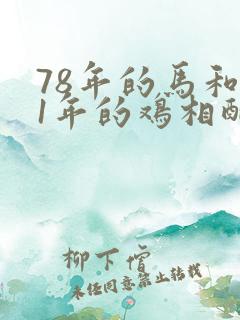 78年的馬和
1年的鸡相
柳下惜
未经同意禁止转载